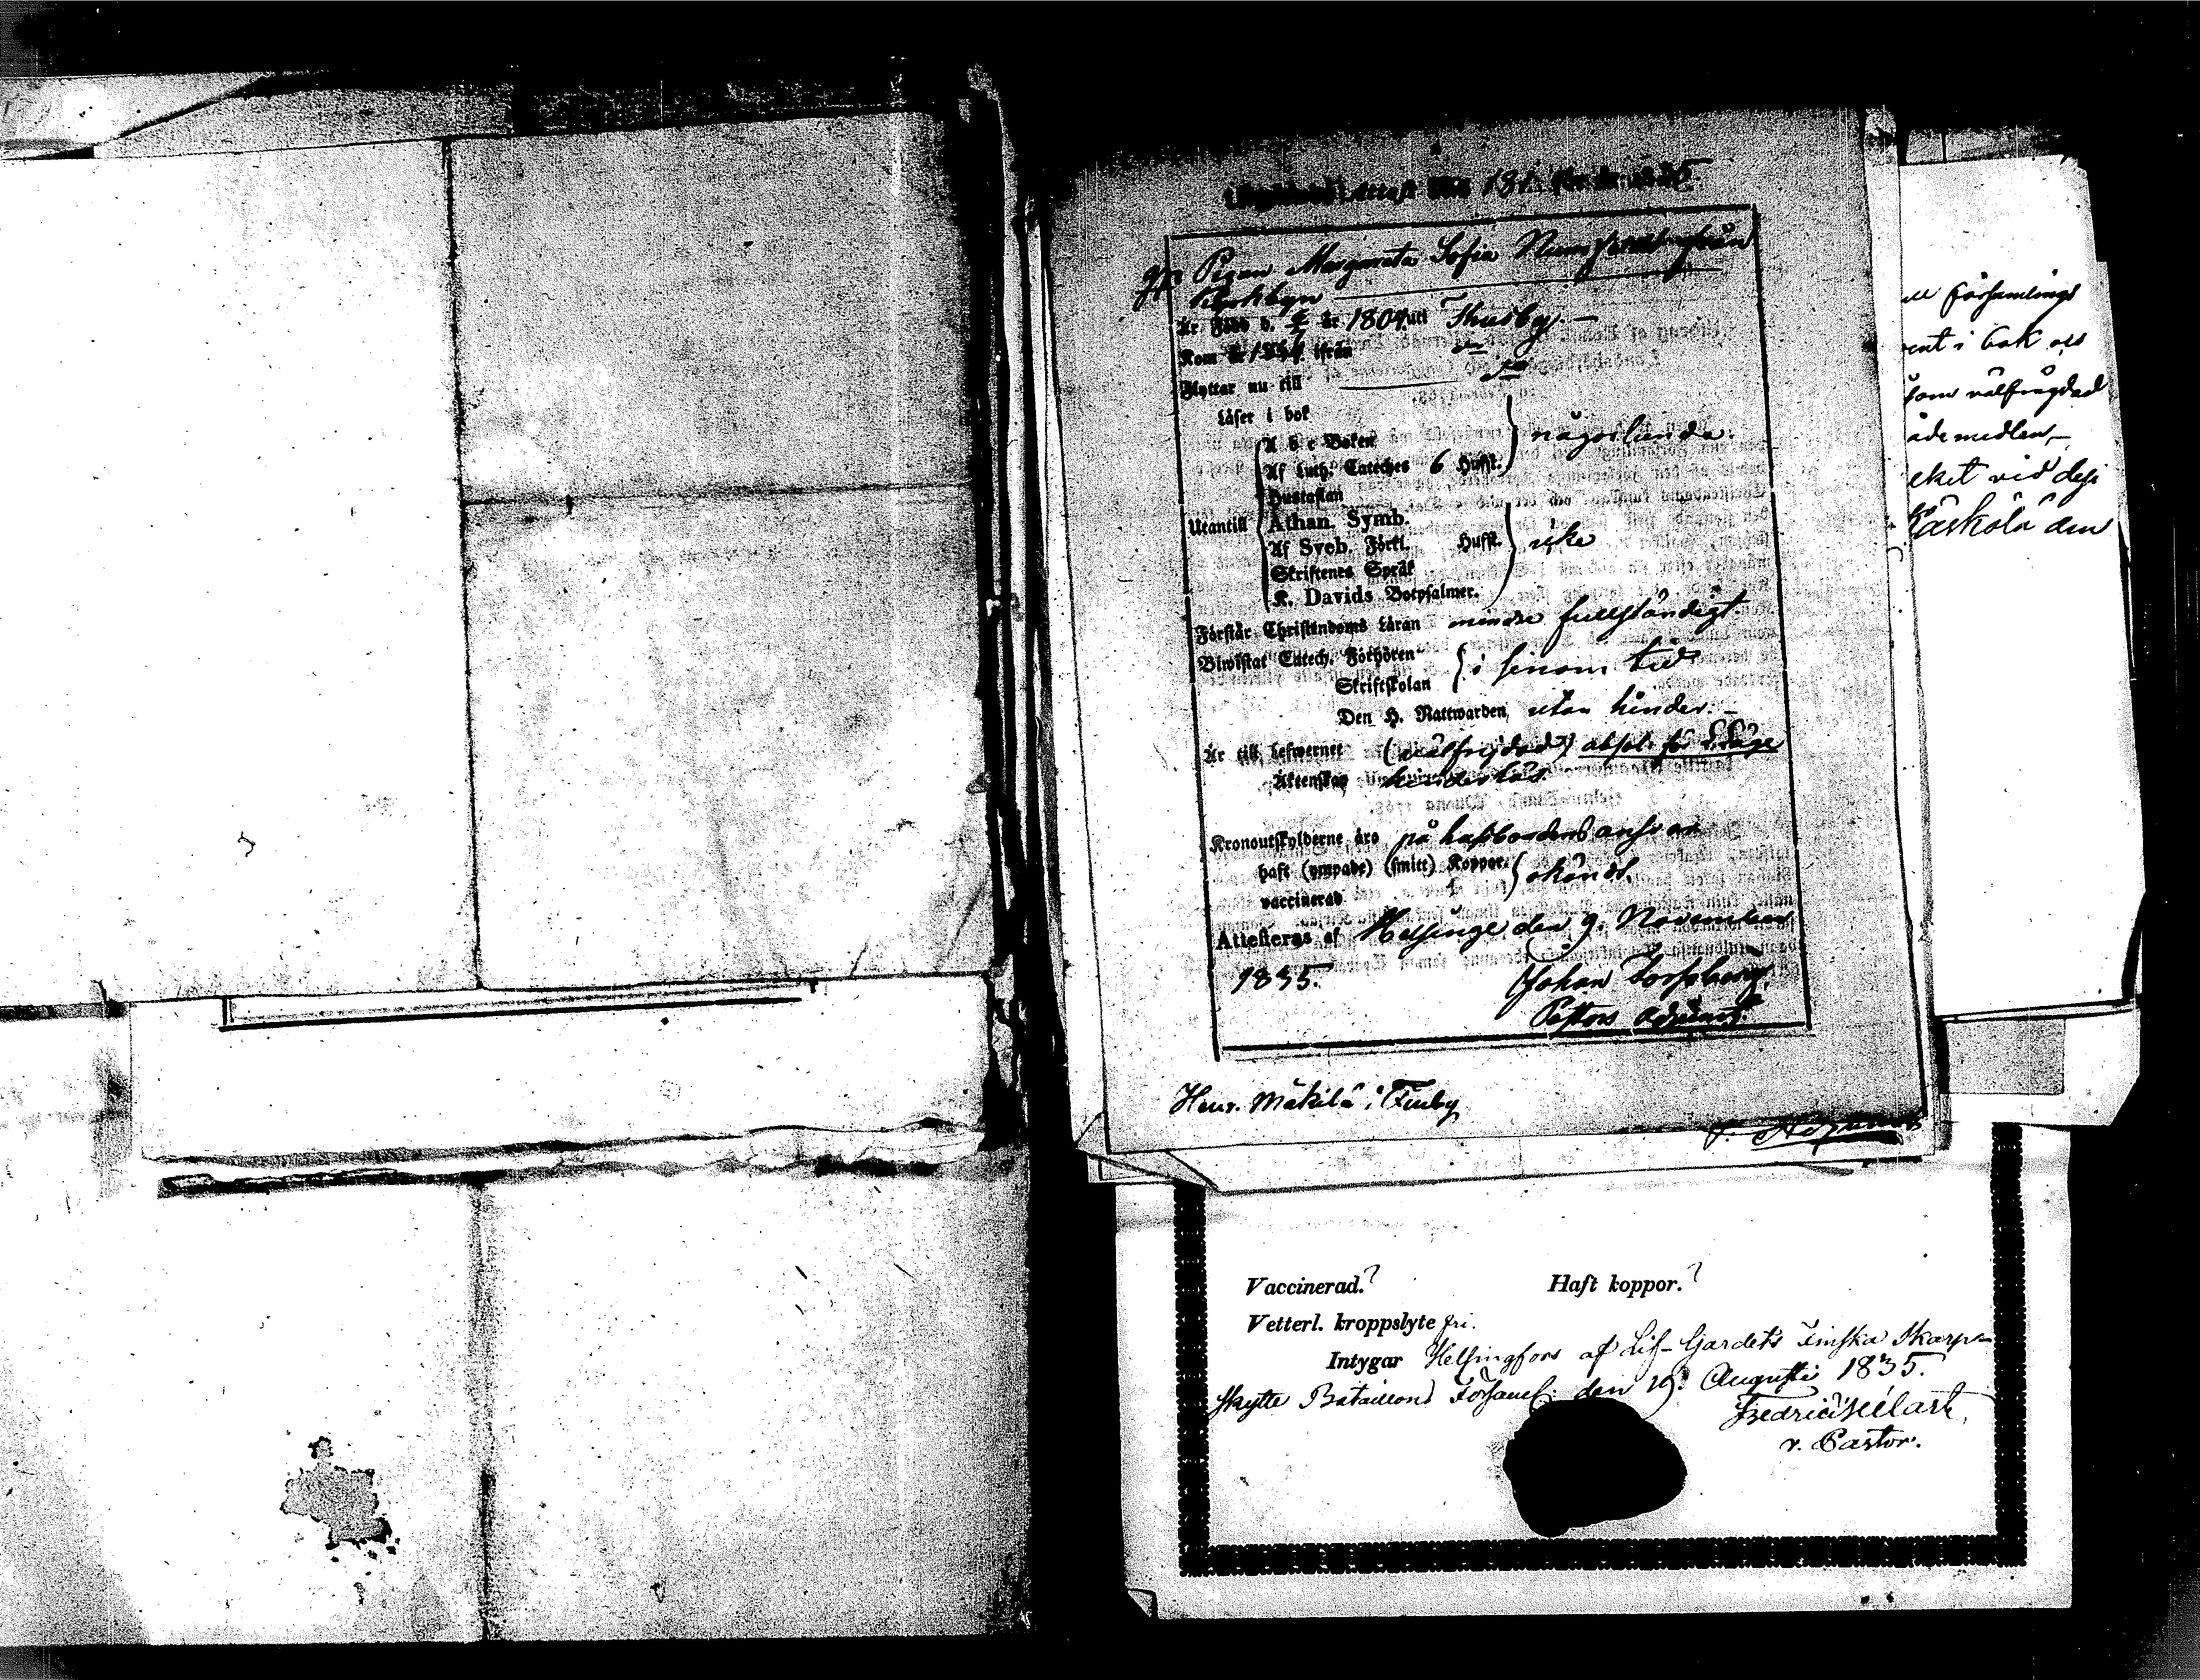 Attest N:o 181. för år 1835.
Pigan Margareta Sofia från
Kyrkbyn
Är Född d. år 1804 uti Thusby. —
Kom år ifrån
Flyttar nu till
Läser i bok
A b c Boken } någorlunda.
Af Luth. Cateches 6 Hufst.
Hustaflan
Utantill Athan. Symb.
Af Sveb. Förkl. Hufst. } icke
Skriftenes Språk
K. Davids Botpsalmer.
Förstår Christendoms Läran mindre fullständigt.
Biwistat Catech. Förhören } i sinom tid
Skriftskolan
Den H. Nattwarden, utan hinder. —
Är till Lefwernet (välfrejdad) absol. för
Äktenskap hinderlös.
Kronoutskylderne äro på husbondens ansvar
haft (ympade) (smitt) Koppor. } okändt.
vaccinerad
Attesteras af Helsinge den 9. November
1835. Johan Forssberg,
Pastors Adjunct.
Henr. Mäkilä i Finby
v. Adjunct
ll församlings
ent i bok och
som välfrägdad
ådemedlen,—
eket vid dess
den
Vaccinerad.? Haft koppor.?
Vetterl. kroppslyte fri.
Intygar Helsingfors af Lif-Gardets Finska Skarp-
skytte Bataillons Församl. den 19. Augusti 1835.
Fredric
v. Pastor.